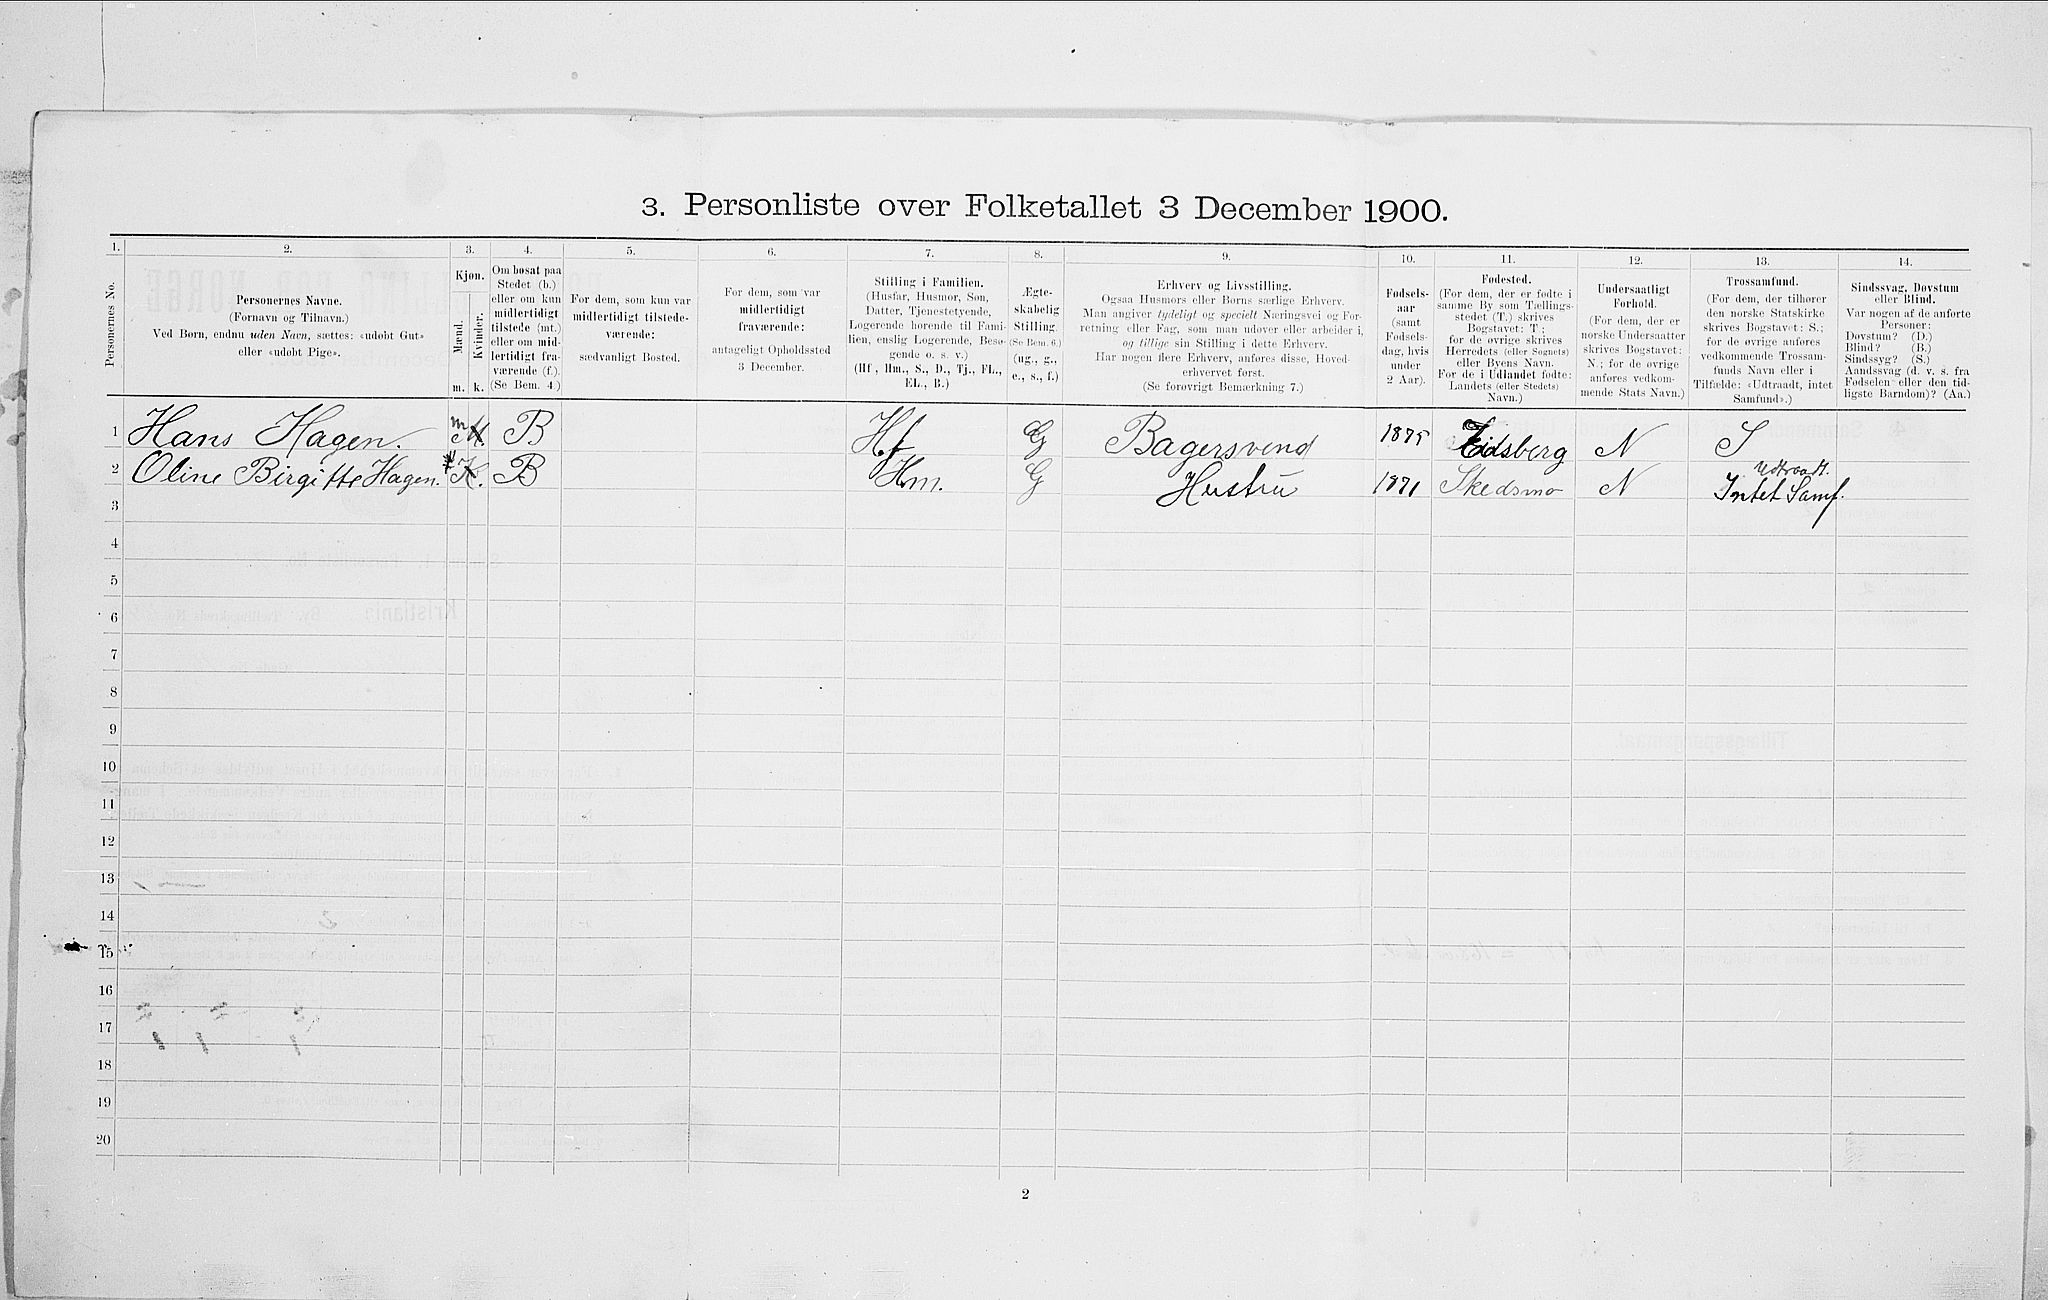 3. Personliste over Folketallet 3 December 1900.
1. 2. 3. 4. 5. 6. 7. 8. 9. 10. 11. 12. 13. 14.
Personernes No.
Personernes Navne.
(Fornavn og Tilnavn.)
Ved Børn, endnu uden Navn, sættes: «udøbt Gut»
eller «udøbt Pige».
Kjøn.
Mænd.
Kvinder.
m. k.
Om bosat paa
Stedet (b.)
eller om kun
midlertidigt
tilstede (mt.)
eller om mid-
lertidigt fra-
værende (f.)
(Se Bem. 4.)
For dem, som kun var
midlertidigt tilstede-
værende:
sædvanligt Bosted.
For dem, som var
midlertidigt
fraværende:
antageligt Opholdssted
3 December.
Stilling i Familien.
(Husfar, Husmor, Søn,
Datter, Tjenestetyende,
Logerende hørende til Fami-
lien, enslig Logerende, Besø-
gende o. s. v.)
(Hf, Hm., S., D., Tj., FL.,
EL., B.)
Ægte-
skabelig
Stilling.
(Se Bem. 6.)
(ug., g.,
e., s., f.)
Erhverv og Livsstilling.
Ogsaa Husmors eller Børns særlige Erhverv.
Man angiver tydeligt og specielt Næringsvei og For-
retning eller Fag, som man udøver eller arbeider i,
og tillige sin Stilling i dette Erhverv.
Har nogen flere Erhverv, anføres disse, Hoved-
erhvervet først.
(Se forøvrigt Bemærkning 7.)
Fødsels-
aar
(samt
Fødsels-
dag, hvis
under
2 Aar).
Fødested.
(For dem, der er fødte i
samme By som Tællings-
stedet (T.) skrives
Bogstavet: T ;
for de øvrige skrives
Herredets (eller Sognets)
eller Byens Navn.
For de i Udlandet fødte:
Landets (eller Stedets)
Navn.)
Undersaatligt
Forhold.
(For dem, der er
norske Undersaatter
skrives Bogstavet:
N.; for de øvrige
anføres vedkom-
mende Stats Navn.)
Trossamfund.
(For dem, der tilhører
den norske Statskirke
skrives Bogstavet: S.;
for de øvrige anføres
vedkommende Trossam-
funds Navn eller i
Tilfælde: «Udtraadt, intet
Samfund».)
Sindssvag, Døvstum
eller Blind.
Var nogen af de anførte
Personer:
Døvstum? (D.)
Blind? (B.)
Sindssyg? (S.)
Aandssvag (d. v. s. fra
Fødselen eller den tid-
ligste Barndom)? (Aa.)
1 Hans Hagen. m M. B Hf G Bagersvend 1875 Eidsberg N S
2 Oline Birgitte Hagen. K. B Hm. G Hustru 1871 Skedsmo N Udtraadt. Intet Samf.
3
4
5
6
7
8
9
10
11
12
13
14
15
16
17
18
19
20
2